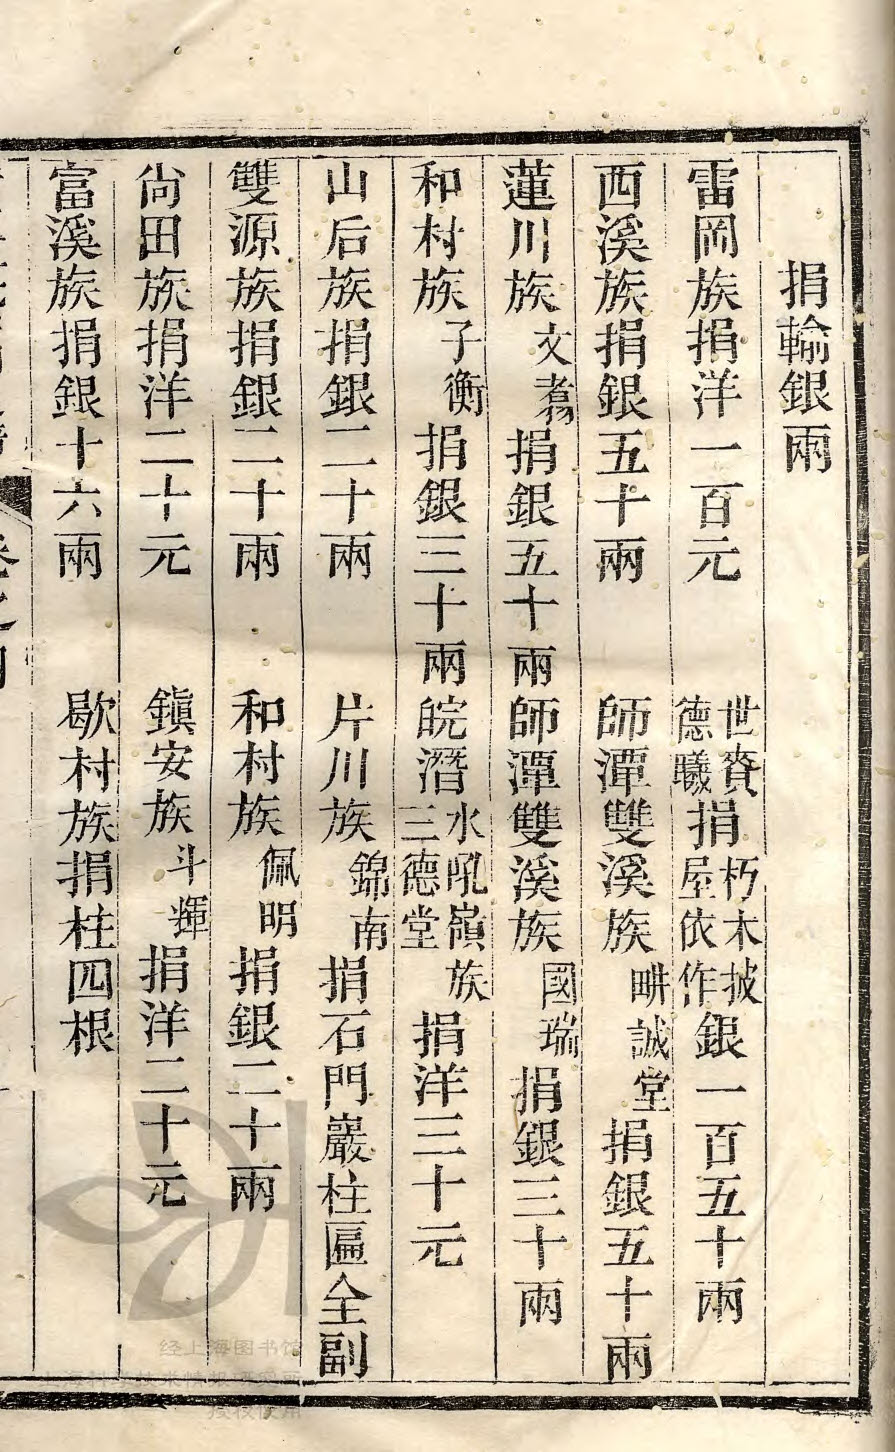 捐輸銀兩
雷岡族捐洋一百元　世賚德曦捐朽木披屋依作銀一百五十兩
西溪族捐銀五十兩　師潭雙溪族畊誠堂捐銀五十兩
蓮川族文翥捐銀五十兩師潭雙溪族國瑞捐銀三十兩
和村族子衡捐銀三十兩皖潛水吼嶺族三德堂捐洋三十元
山后族捐銀二十兩　片川族錦南捐石門巖柱匾全副
雙源族捐銀二十兩　和村族佩明捐銀二十兩
尙田族捐洋二十元　鎭安族斗輝捐洋二十元
富溪族捐銀十六兩　歇村族捐柱四根
经上海图书馆
授权使用